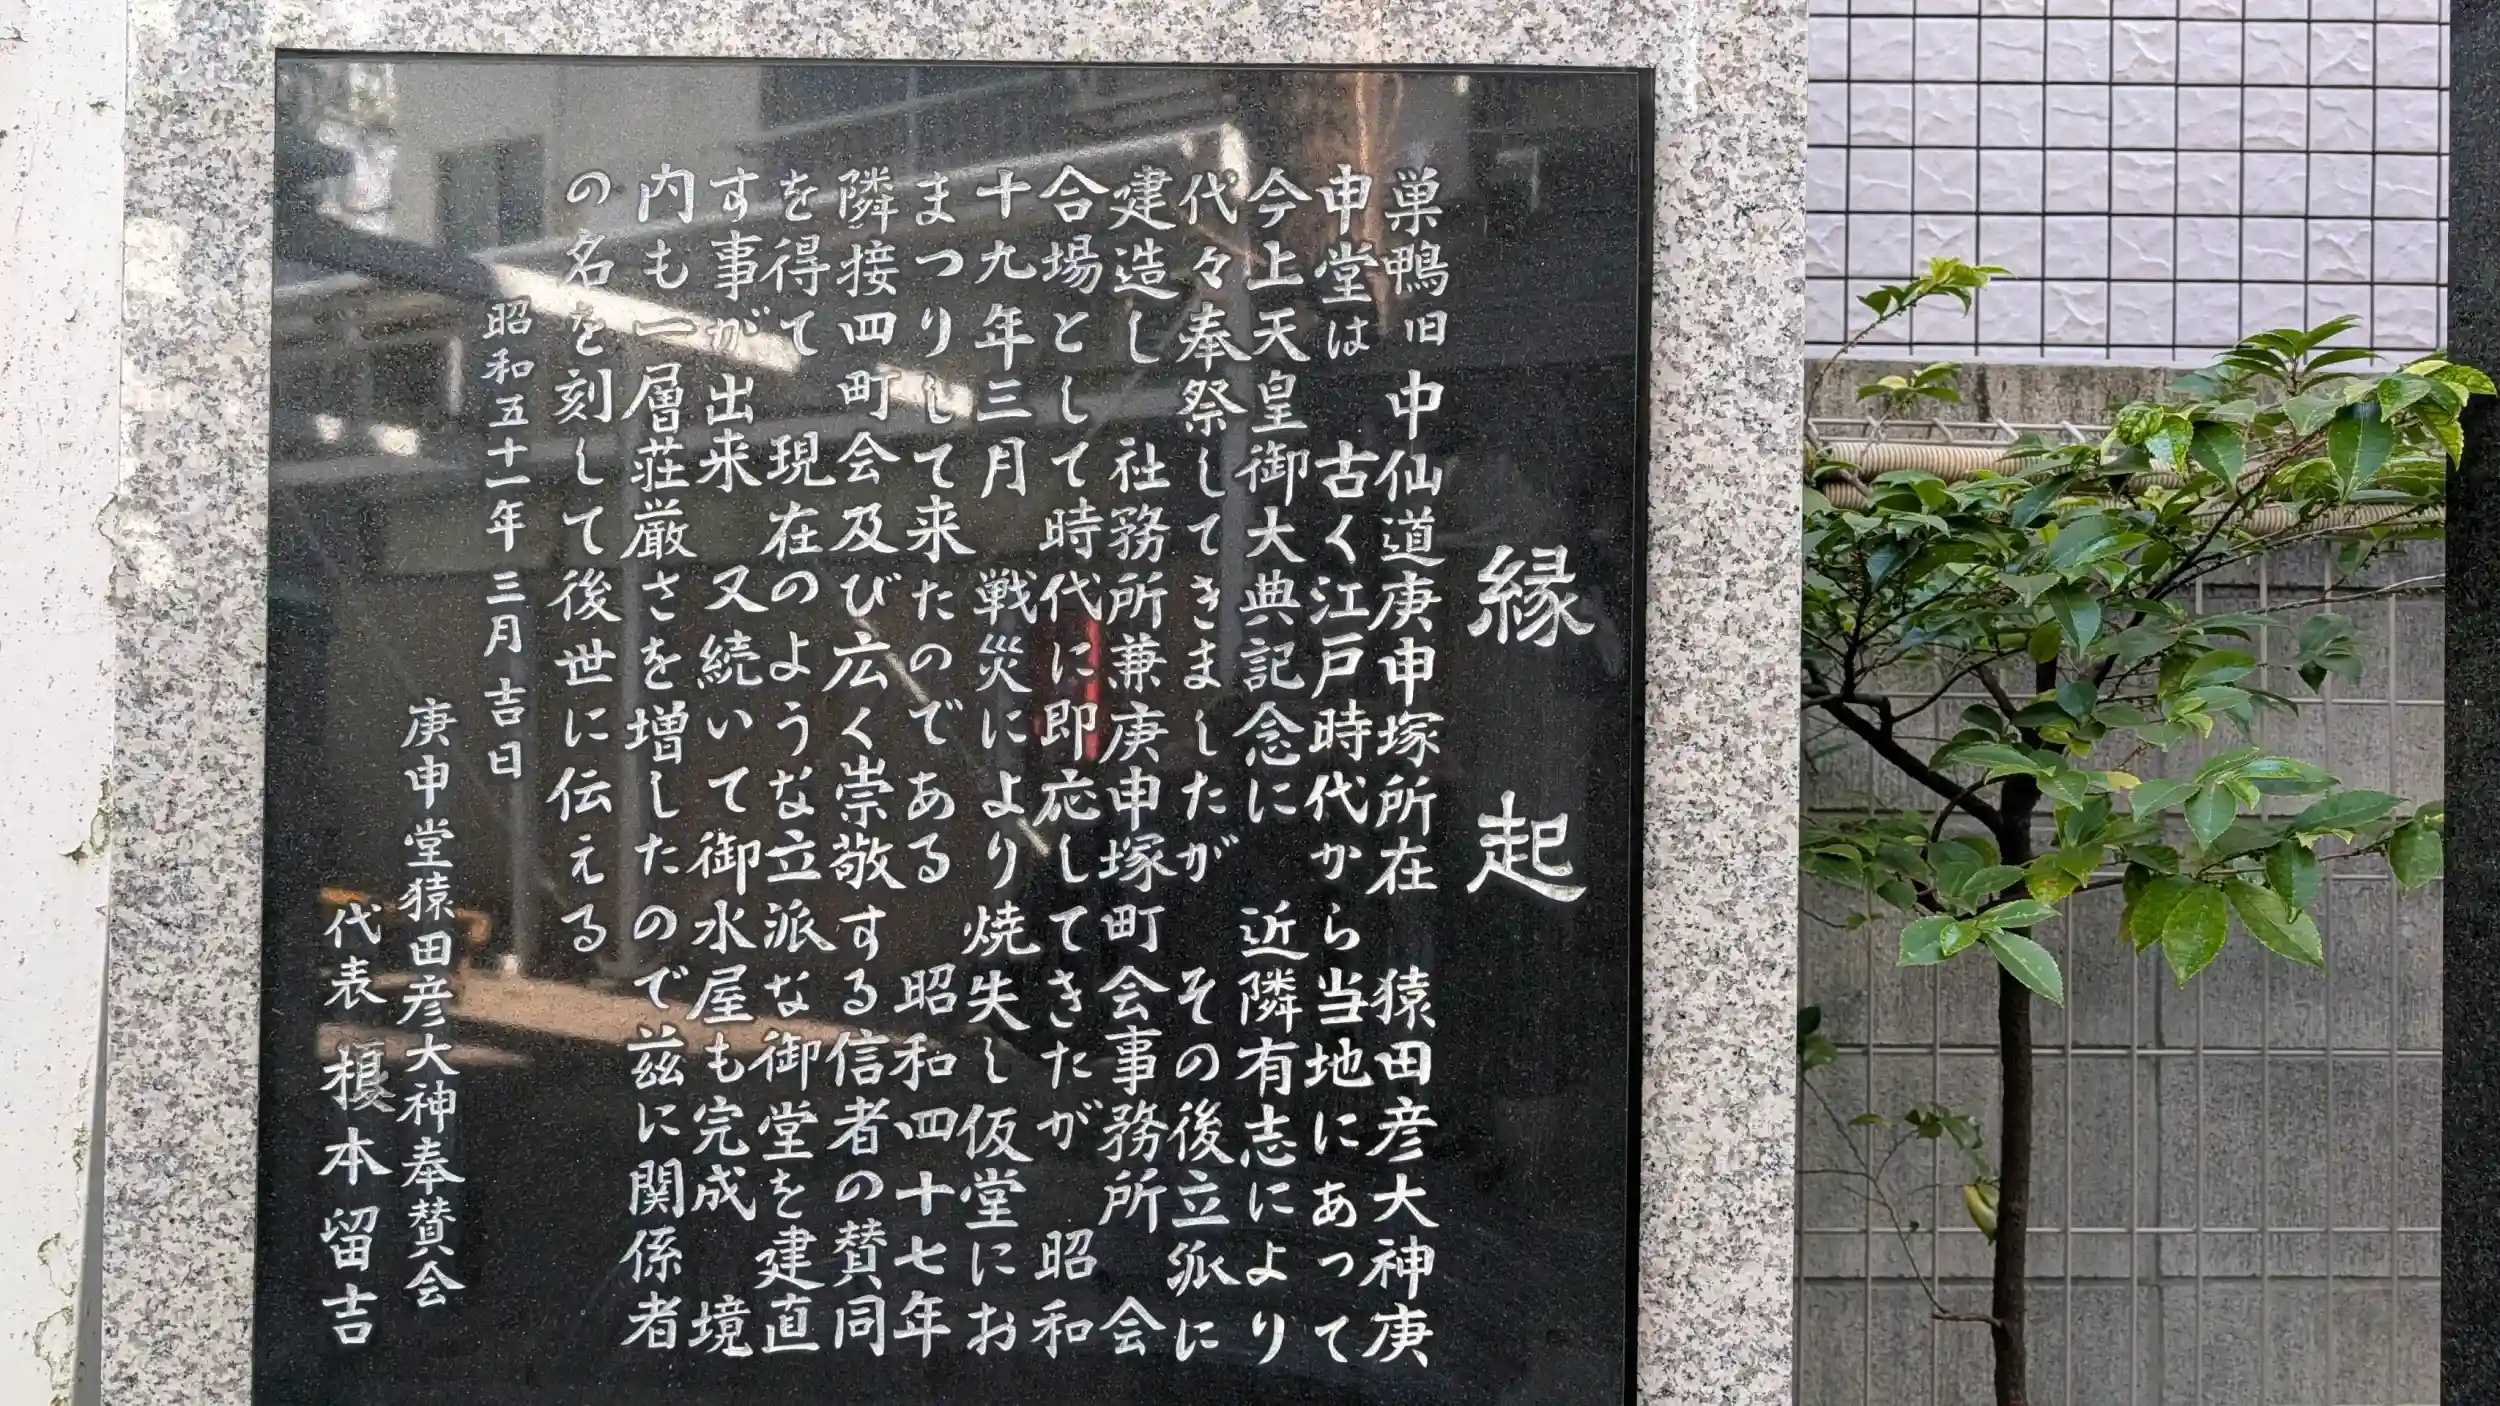 縁起
巣鴨旧中仙道庚申塚所在　猿田彦大神庚
申堂は　古く江戸時代から当地にあって
今上天皇御大典記念に　近隣有志により
代々奉祭してきましたが　その後立派に
建造し　社務所兼庚申塚町会事務所　会
合場として時代に即応してきたが　昭和
十九年三月　戦災により焼失し仮堂にお
まつりして来たのである　昭和四十七年
隣接四町会及び広く崇敬する信者の賛同
を得て　現在のような立派な御堂を建直
す事が出来　又続いて御水屋も完成　境
内も一層荘厳さを増したので茲に関係者
の名を刻して後世に伝える
昭和五十一年三月吉日
庚申堂猿田彦大神奉賛会
代表　榎本留吉